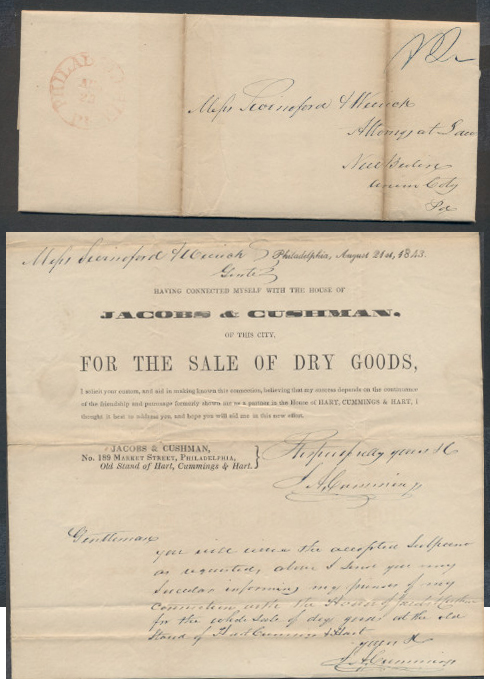 PHILAD
PA
Mess Swineford & Weirick
Attorneys at Law
New Berlin
Union Co
Pa
Mess Swineford & Weirick
Philadelphia, August 21st, 1843.
Gents
HAVING CONNECTED MYSELF WITH THE HOUSE OF
JACOBS & CUSHMAN,
OF THIS CITY,
FOR THE SALE OF DRY GOODS,
I solicit your custom, and aid in making known this connection, believing that my success depends on the continuance
of the friendship and patronage formerly shown me as a partner in the House of HART, CUMMINGS & HART, I
thought it best to address you, and hope you will aid me in this new effort.
JACOBS & CUSHMAN,
No. 189 MARKET STREET, PHILADELPHIA,
Old Stand of Hart, Cummings & Hart.
Respectfully yours &c
Cummings
Gentlemen
you will the accepted Subpoena
as requested, above I send you my
Circular informing my friends of my
Connection with the House of Jacobs & Cushman
for the wholeSale of dry goods at the old
Stand of Hart Cummings & Hart
yours &
Cummings